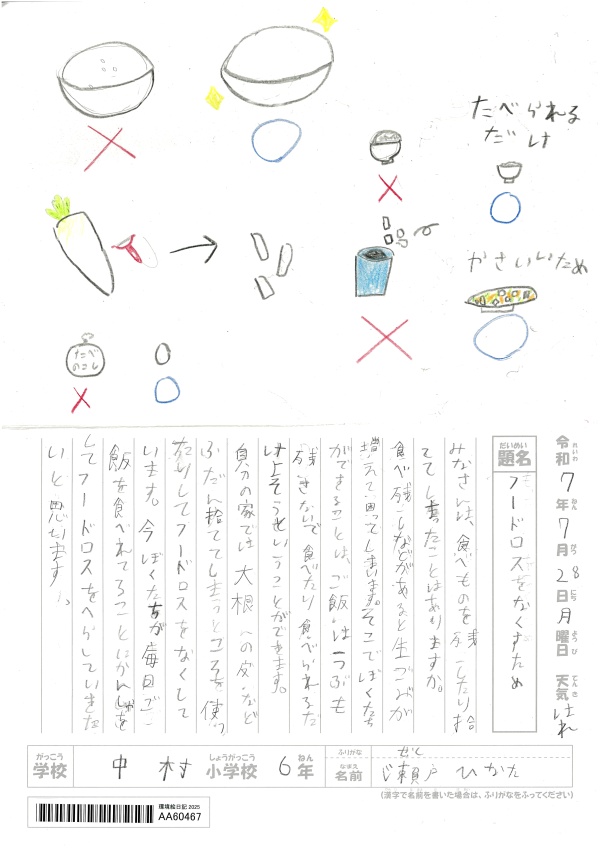 たべられる
だけ
やさいいため
たべ
のこし
令和7年7月28日月曜日 天気 はれ
れいわ ねん がつ にち ようび てんき
だいめい
題名
フードロスをなくすため
みなさんは、食べものを残したり捨
ててしまったことはありますか。
食べ残しなどがあると生ごみが
増えて困ってしまいます。そこでぼくたち
ができることは、ご飯は一つぶも
残さないで食べたり食べられるた
けよそうということができます。
自分の家では大根の皮など
ふだん捨ててしまうところを使っ
たりしてフードロスをなくして
います。今ぼくたちが毎日ご
飯を食べれてることにかんしゃを
してフードロスをへらしていきた
いと思います。
がっこう
学校
中村
しょうがっこう
小学校
6年
ねん
ふりがな
せと
なまえ
名前
瀬戸 ひかた
(漢字で名前を書いた場合は、ふりがなをふってください)
環境絵日記 2025
AA60467